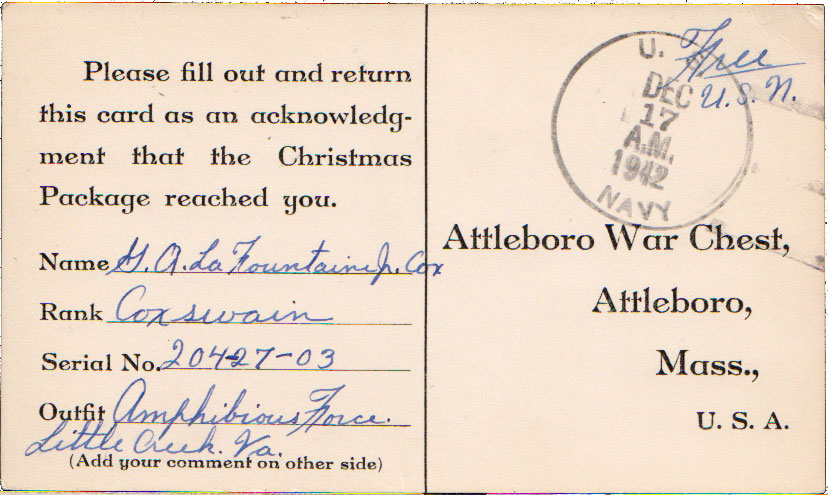 Please fill out and return
this card as an acknowledg-
ment that the Christmas
Package reached you.
Name G. A. La Fountaine Jr. Cox
Rank Coxswain
Serial No. 204-27-03
Outfit Amphibious Force.
Little Creek. Va.
(Add your comment on other side)
Free
U.S.N.
U. S.
DEC
17
A.M.
1942
NAVY
Attleboro War Chest,
Attleboro,
Mass.,
U. S. A.